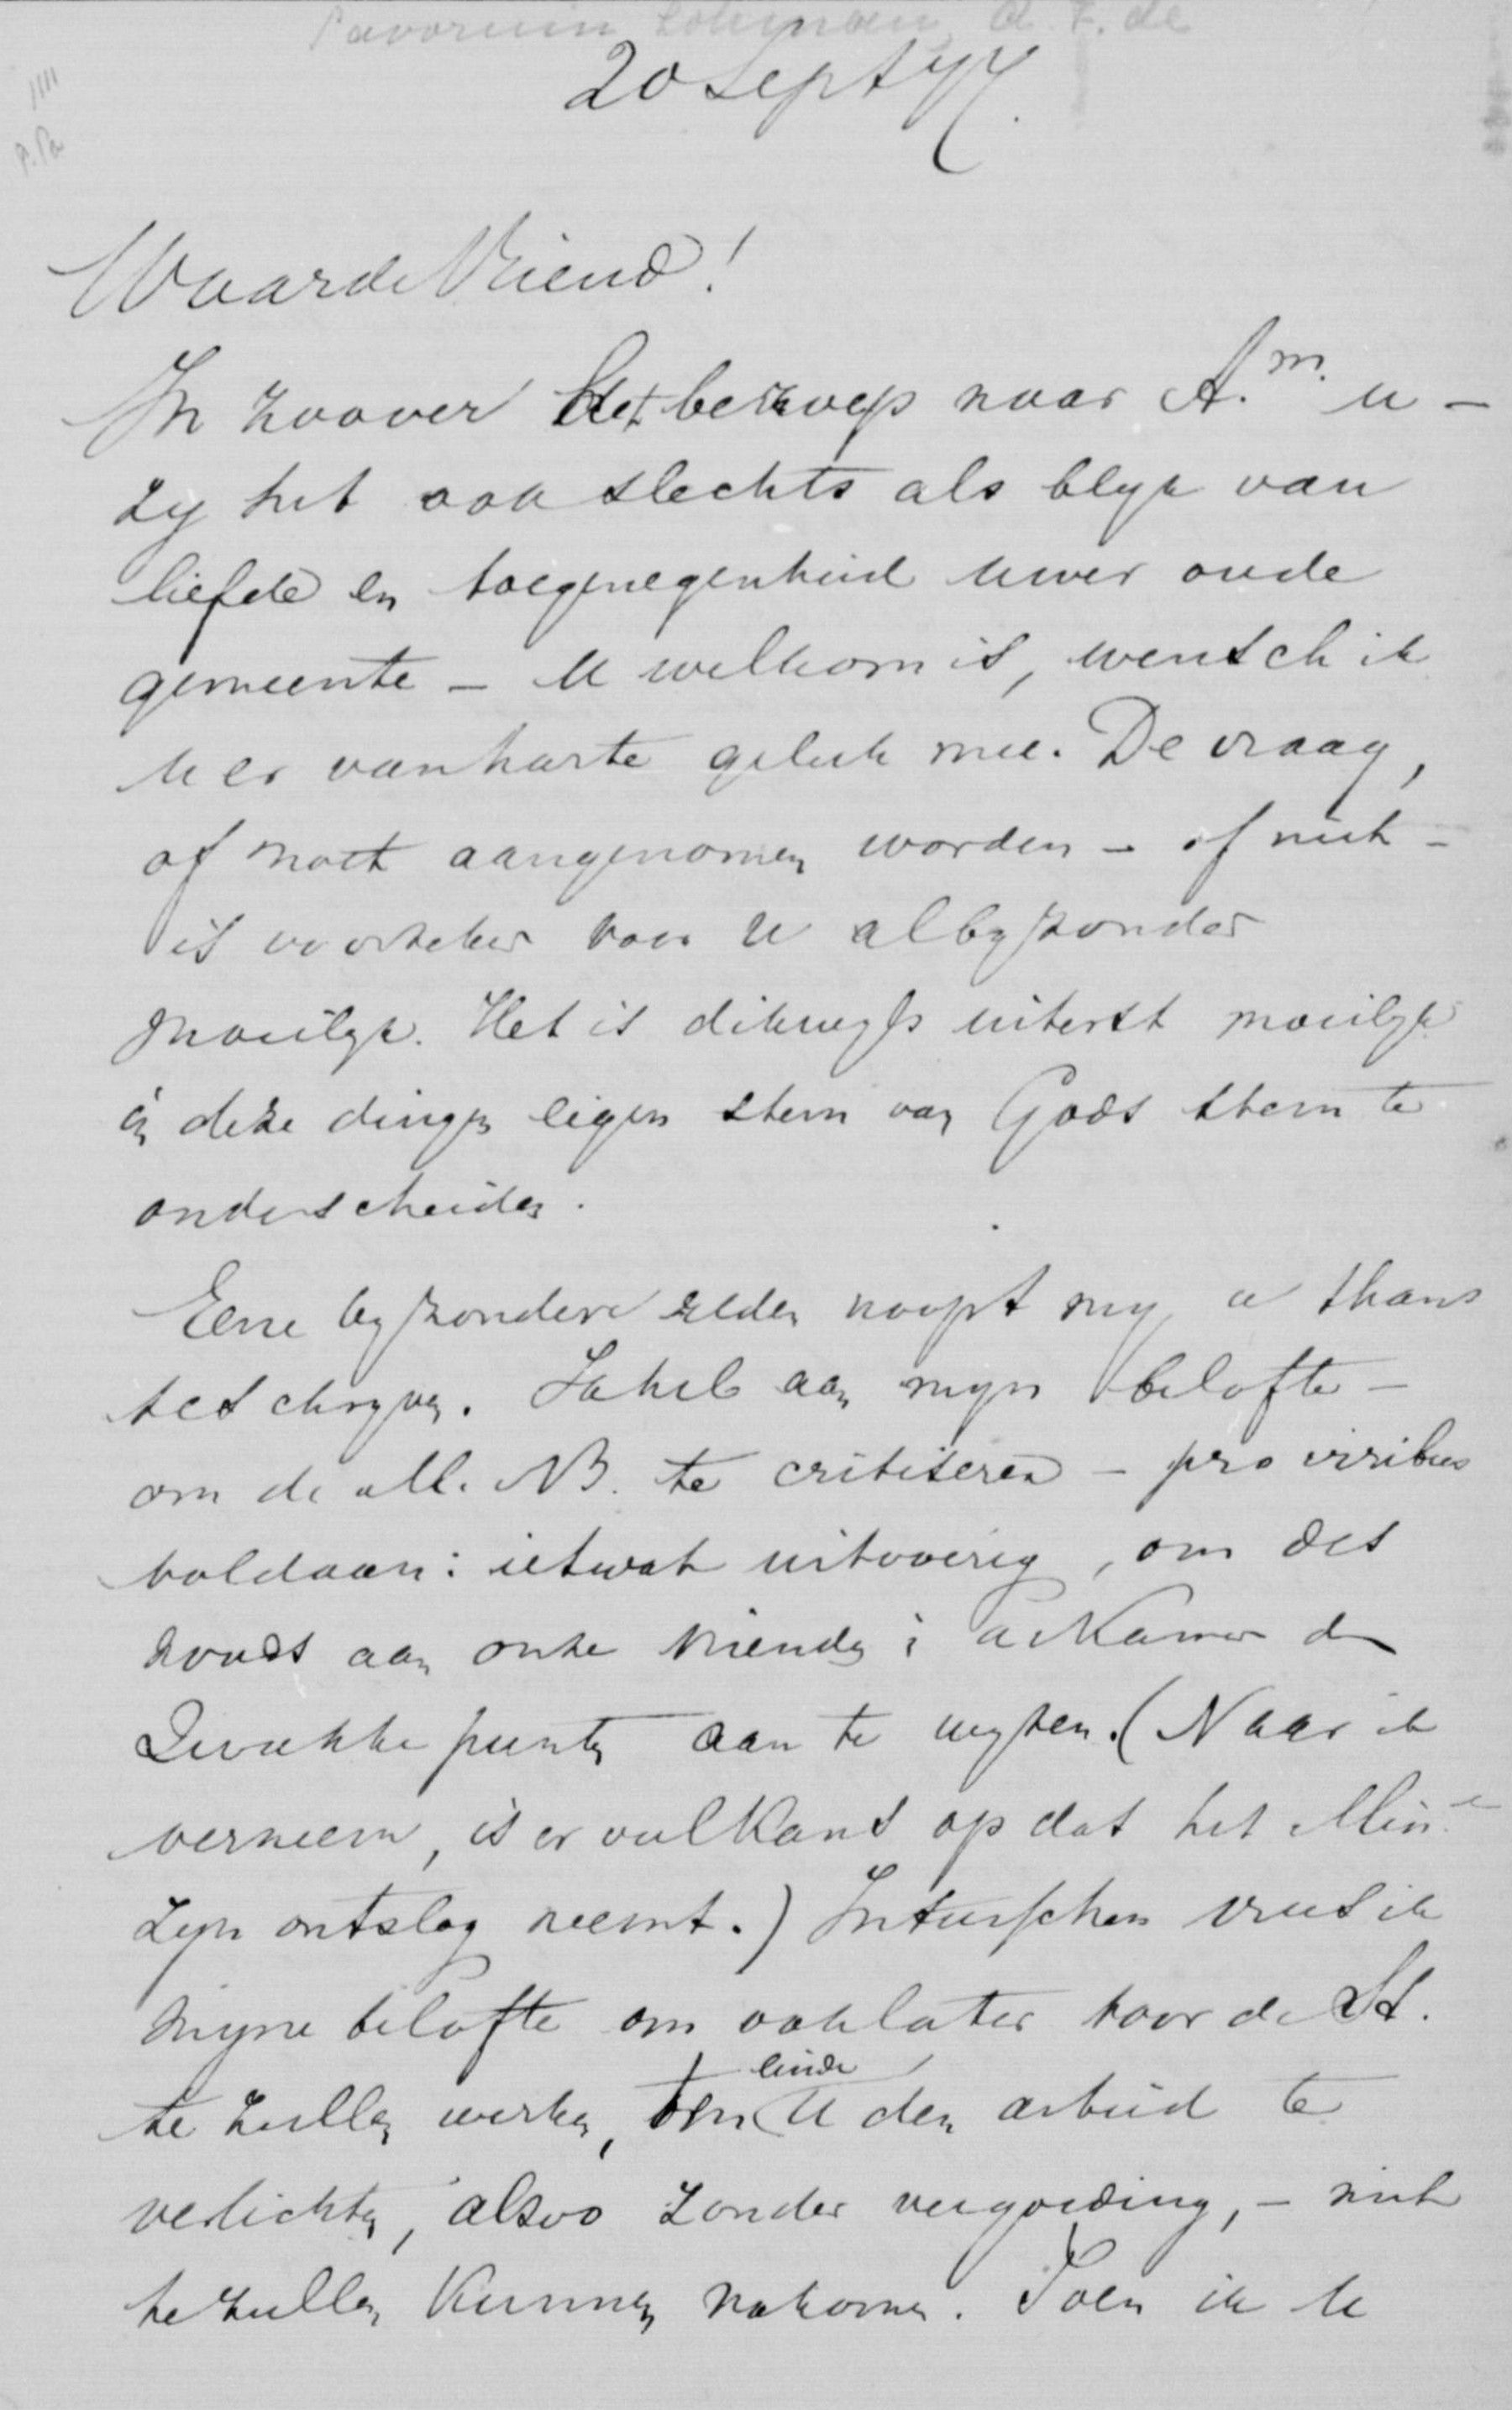 Savornin Lohman, A. F. de
20 Sept 77.
Waarde Vriend!
In zoover het beroep naar A.m. u -
zy het ook slechts als blyk van
liefde en toegenegenheid uwer oude
gemeente - U welkom is, wensch ik
u er van harte geluk mee. De vraag,
of moet aangenomen worden - of niet -
is voorzeker voor U al byzonder
moeilyk. Het is dikwyls uiterst moeilyk
in deze dingen eigen stem van Gods stem te
onderscheiden.
Eene byzondere reden noopt my u thans
te schryven. Ik heb aan myn belofte -
om de M. NB. te critiseren - pro viribus
voldaan: ietwat uitvoerig, om des
noods aan onze vrienden i d Kamer de
zwakke punten aan te wyzen. (Naar ik
verneem, is er veel kans op dat het Min.e
zyn ontslag neemt.) Intusschen vrees ik
myne belofte om ook later voor de St.
te zullen werken, ten einde U den arbeid te
verlichten, alzoo zonder vergoeding, - niet
te zullen kunnen nakomen. Toen ik U